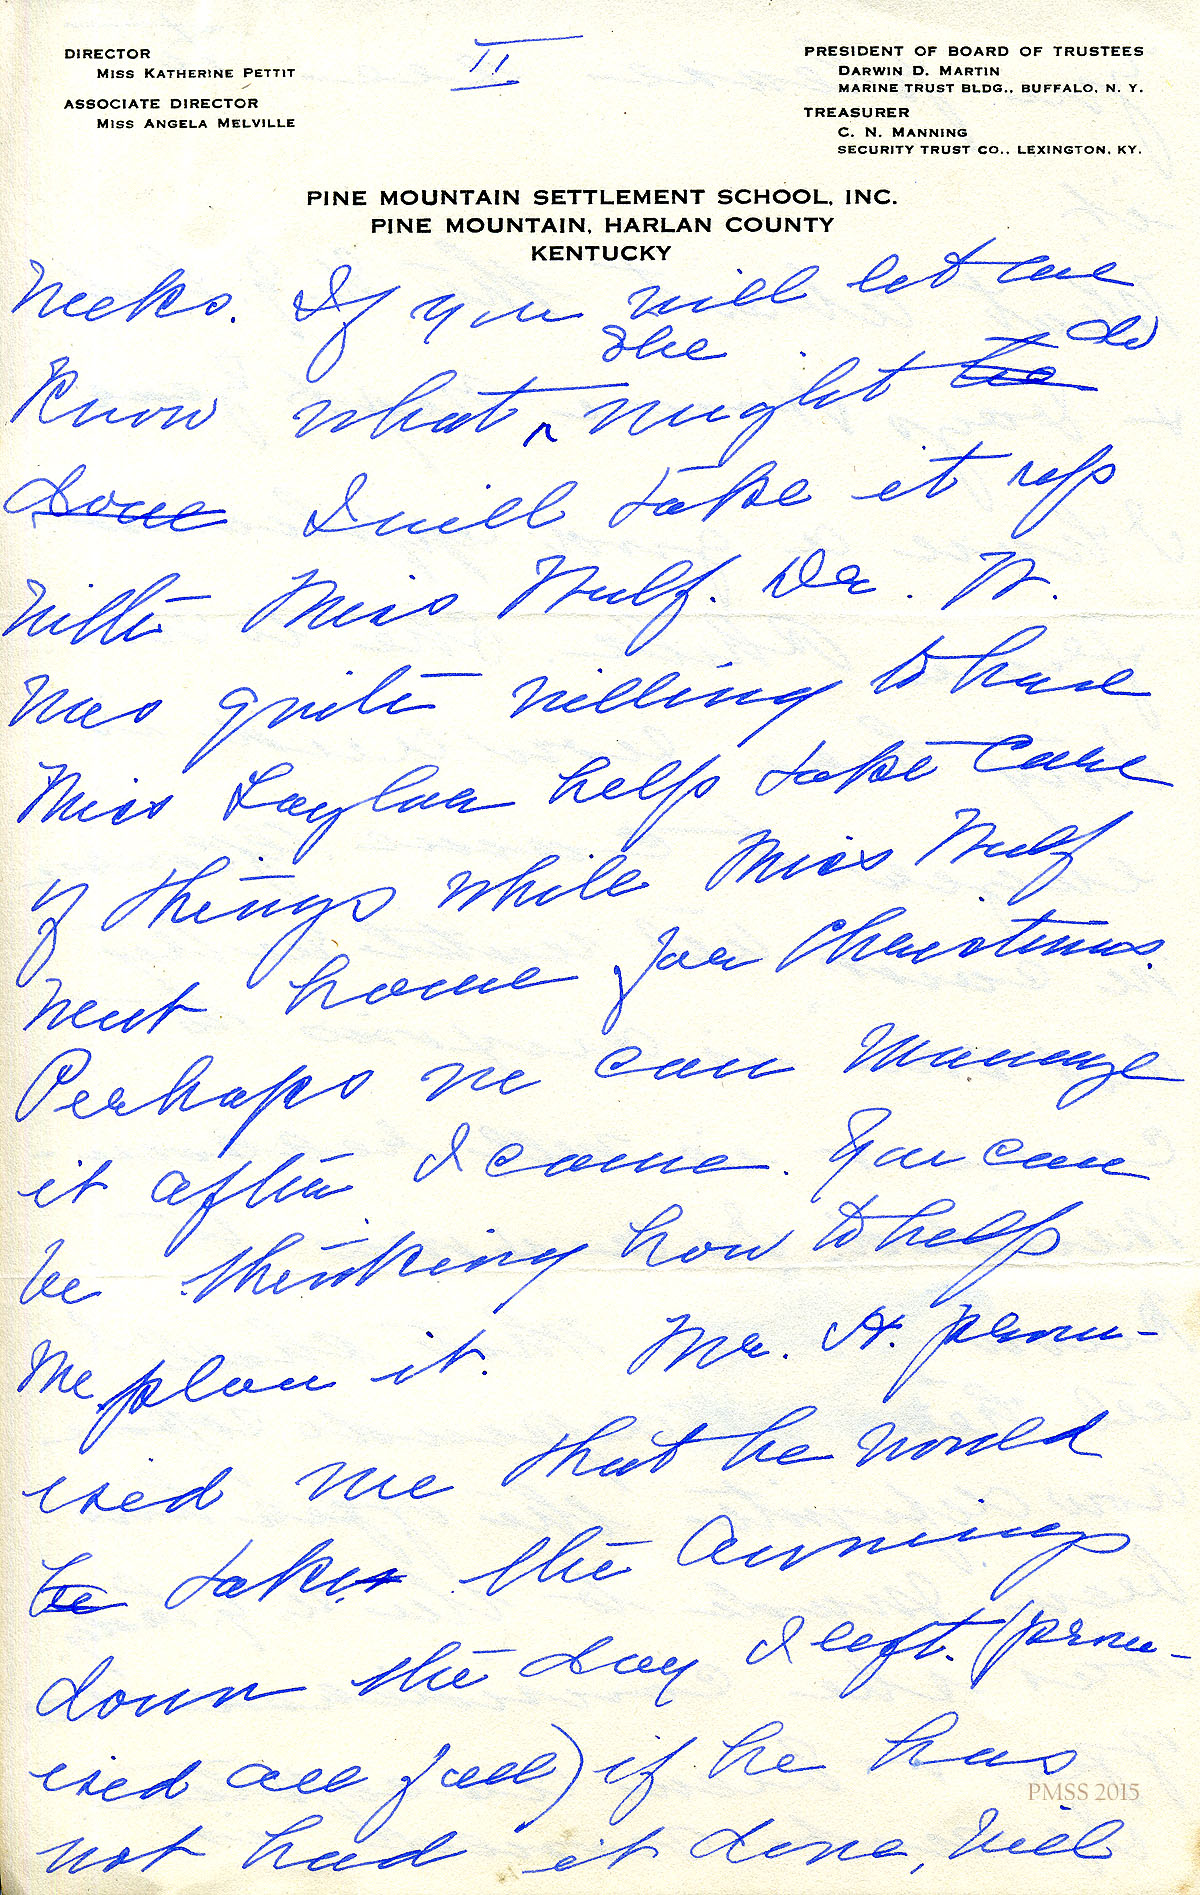 II
DIRECTOR
MISS KATHERINE PETTIT
ASSOCIATE DIRECTOR
MISS ANGELA MELVILLE
PRESIDENT OF BOARD OF TRUSTEES
DARWIN D. MARTIN
MARINE TRUST BLDG., BUFFALO, N. Y.
TREASURER
C. N. MANNING
SECURITY TRUST CO., LEXINGTON, KY.
PINE MOUNTAIN SETTLEMENT SCHOOL, INC.
PINE MOUNTAIN, HARLAN COUNTY
KENTUCKY
weeks. If you will let me
know what ^ she might be do
done I will take it up
with Miss Wulf. Dr. W.
was quite willing to have
Miss Saylor help take care
of things while Miss Wulf
went home for Christmas.
Perhaps we can manage
it after I come. You can
be thinking how to help
me plan it. Mr. A. prom-
ised me that he would
be take the awnings
down the day I left. (prom-
ised all fall) if he has
not had it done, will
PMSS 2015